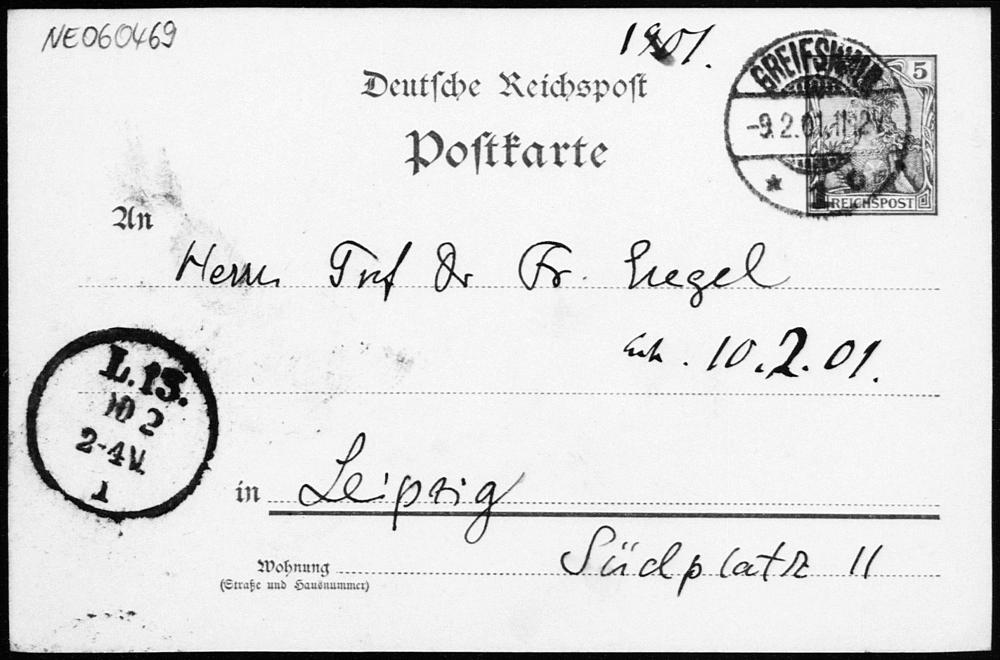 NE060469
1901.
Deutsche Reichspost
Postkarte
GREIFSWALD
-9.2.01.11-12V.
5
REICHSPOST
An
Herrn Prof Dr Fr. Engel
erh. 10.2.01.
L.13.
10 2
2-4V.
1
in Leipzig
Südplatz 11
Wohnung
(Straße und Hausnummer)